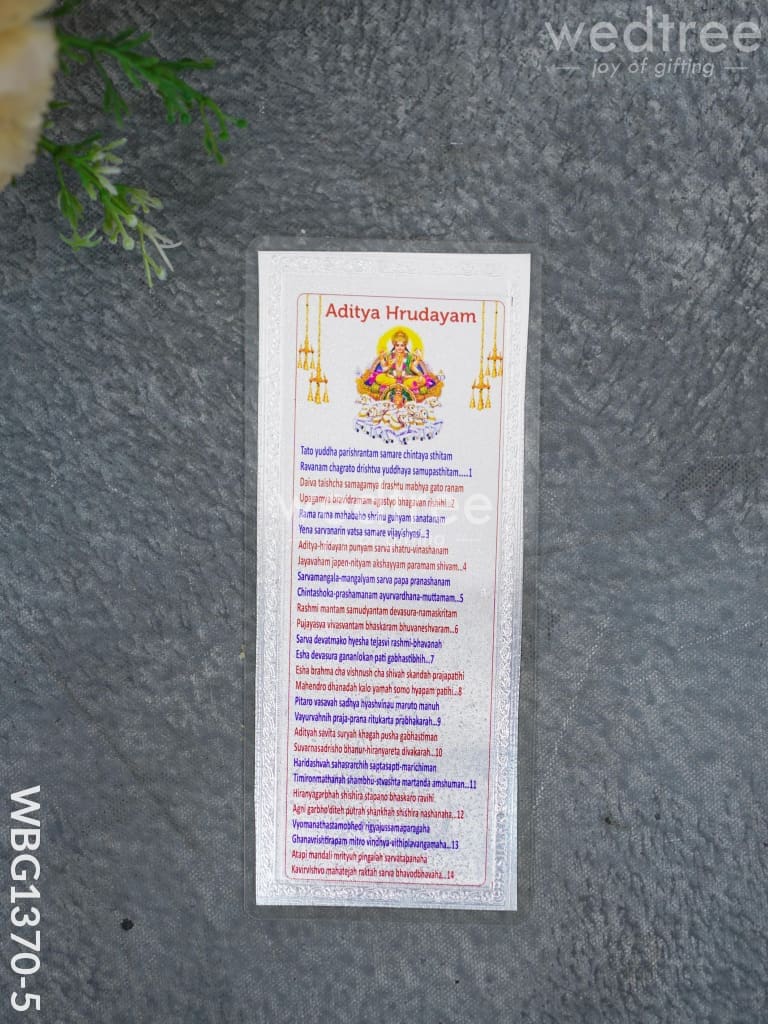 wedtree
joy of gifting
Aditya Hrudayam
Tato yuddha parishrantam samare chintaya sthitam
Ravanam chagrato drishtva yuddhaya samupasthitam.....1
Daiva taishcha samagamya drashtu mabhya gato ranam
Upagamya bravidramam agastyo bhagavan rishihi...2
Rama rama mahabaho shrinu guhyam sanatanam
Yena sarvanarin vatsa samare vijayishyasi...3
Aditya-hridayam punyam sarva shatru-vinashanam
Jayavaham japen-nityam akshayyam paramam shivam...4
Sarvamangala-mangalyam sarva papa pranashanam
Chintashoka-prashamanam ayurvardhana-muttamam...5
Rashmi mantam samudyantam devasura-namaskritam
Pujayasya vivasvantam bhaskaram bhuvaneshvaram...6
Sarva devatmako hyesha tejasvi rashmi-bhavanah
Esha devasura gananlokan pati gabhastibhih...7
Esha brahma cha vishnush cha shivah skandah prajapatihi
Mahendro dhanadah kalo yamah somo hyapam patihi...8
Pitaro vasavah sadhya hyashvinau maruto manuh
Vayurvahnih praja-prana ritukarta prabhakarah...9
Adityah savita suryah khagah pusha gabhastiman
Suvarnasadrisho bhanur-hiranyareta divakarah...10
Haridashvah sahasrarchih saptasapti-marichiman
Timironmathanah shambhu-stvashta martanda amshuman...11
Hiranyagarbhah shishira stapano bhaskaro ravihi
Agni garbho'diteh putrah shankhah shishira nashanaha...12
Vyomanathastamobhedi rigyajussamaparagaha
Ghanavrishtirapam mitro vindhya-vithiplavangamaha...13
Atapi mandali mrityuh pingalah sarvatapanaha
Kavirvishvo mahatejah raktah sarva bhavodbhavaha...14
WBG1370-5